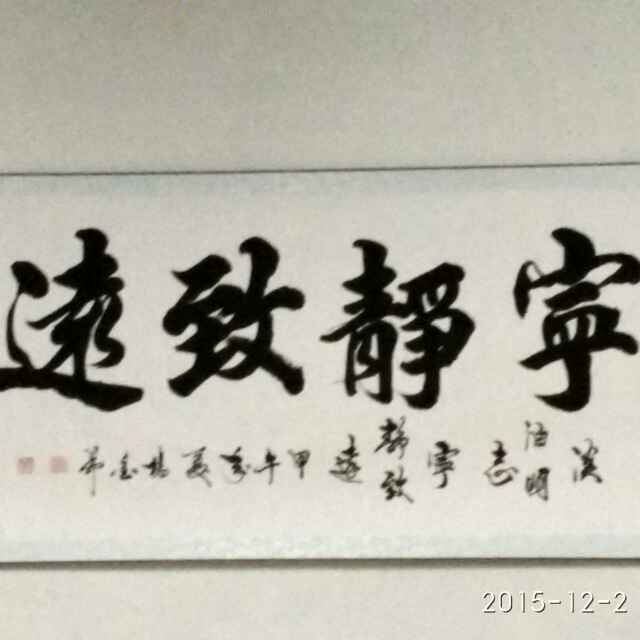 寧靜致遠
淡泊明志寧靜致遠甲午年夏楊金
2015-12-2